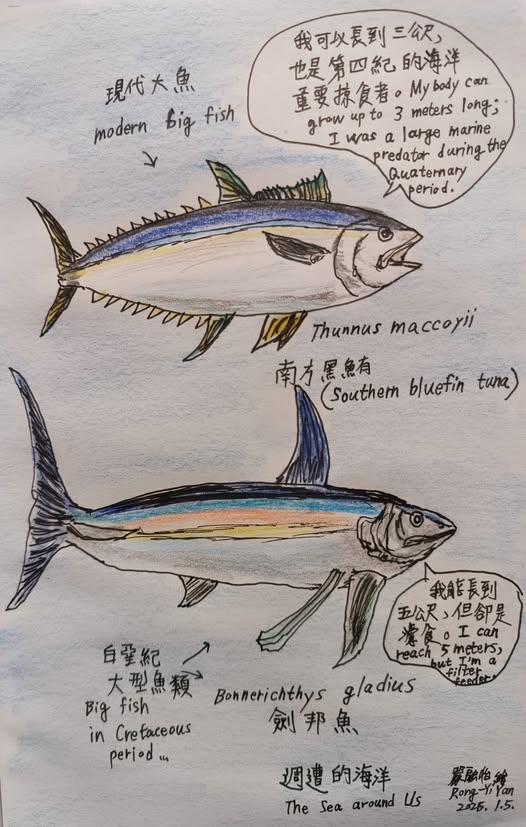 我可以長到三公尺,
也是第四紀的海洋
重要掠食者。My body can
grow up to 3 meters long;
I was a large marine
predator during the
Quaternary
period.
現代大魚
modern Big fish
Thunnus maccoyii
南方黑鮪
(Southern bluefin tuna)
我能長到
五公尺,但卻是
濾食。I can
reach 5 meters,
but I'm a
filter
feeder.
白堊紀
大型魚類
Big fish
in Cretaceous
period...
Bonnerichthys gladius
劍邦魚
週遭的海洋
The Sea around Us
Rong-Yi Yan
2026. 1.5.